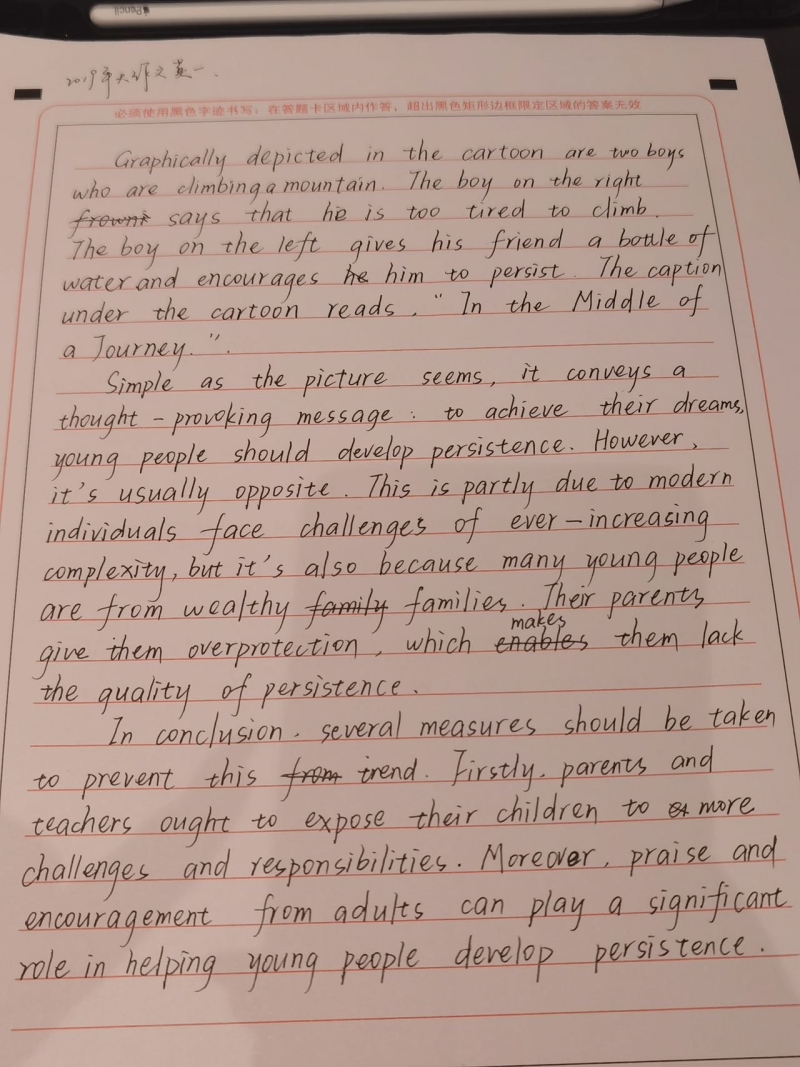 Pencil
2019年大作文英一、
必须使用黑色字迹书写；在答题卡区域内作答，超出黑色矩形边框限定区域的答案无效
Graphically depicted in the cartoon are two boys
who are climbing a mountain. The boy on the right
frowns says that he is too tired to climb.
The boy on the left gives his friend a bottle of
water and encourages he him to persist. The caption
under the cartoon reads, "In the Middle of
a Journey.".
Simple as the picture seems, it conveys a
thought-provoking message: to achieve their dreams,
young people should develop persistence. However,
it's usually opposite. This is partly due to modern
individuals face challenges of ever-increasing
complexity, but it's also because many young people
are from wealthy family families. Their parents
makes
give them overprotection, which enables them lack
the quality of persistence.
In conclusion, several measures should be taken
to prevent this from trend. Firstly, parents and
teachers ought to expose their children to more
challenges and responsibilities. Moreover, praise and
encouragement from adults can play a significant
role in helping young people develop persistence.